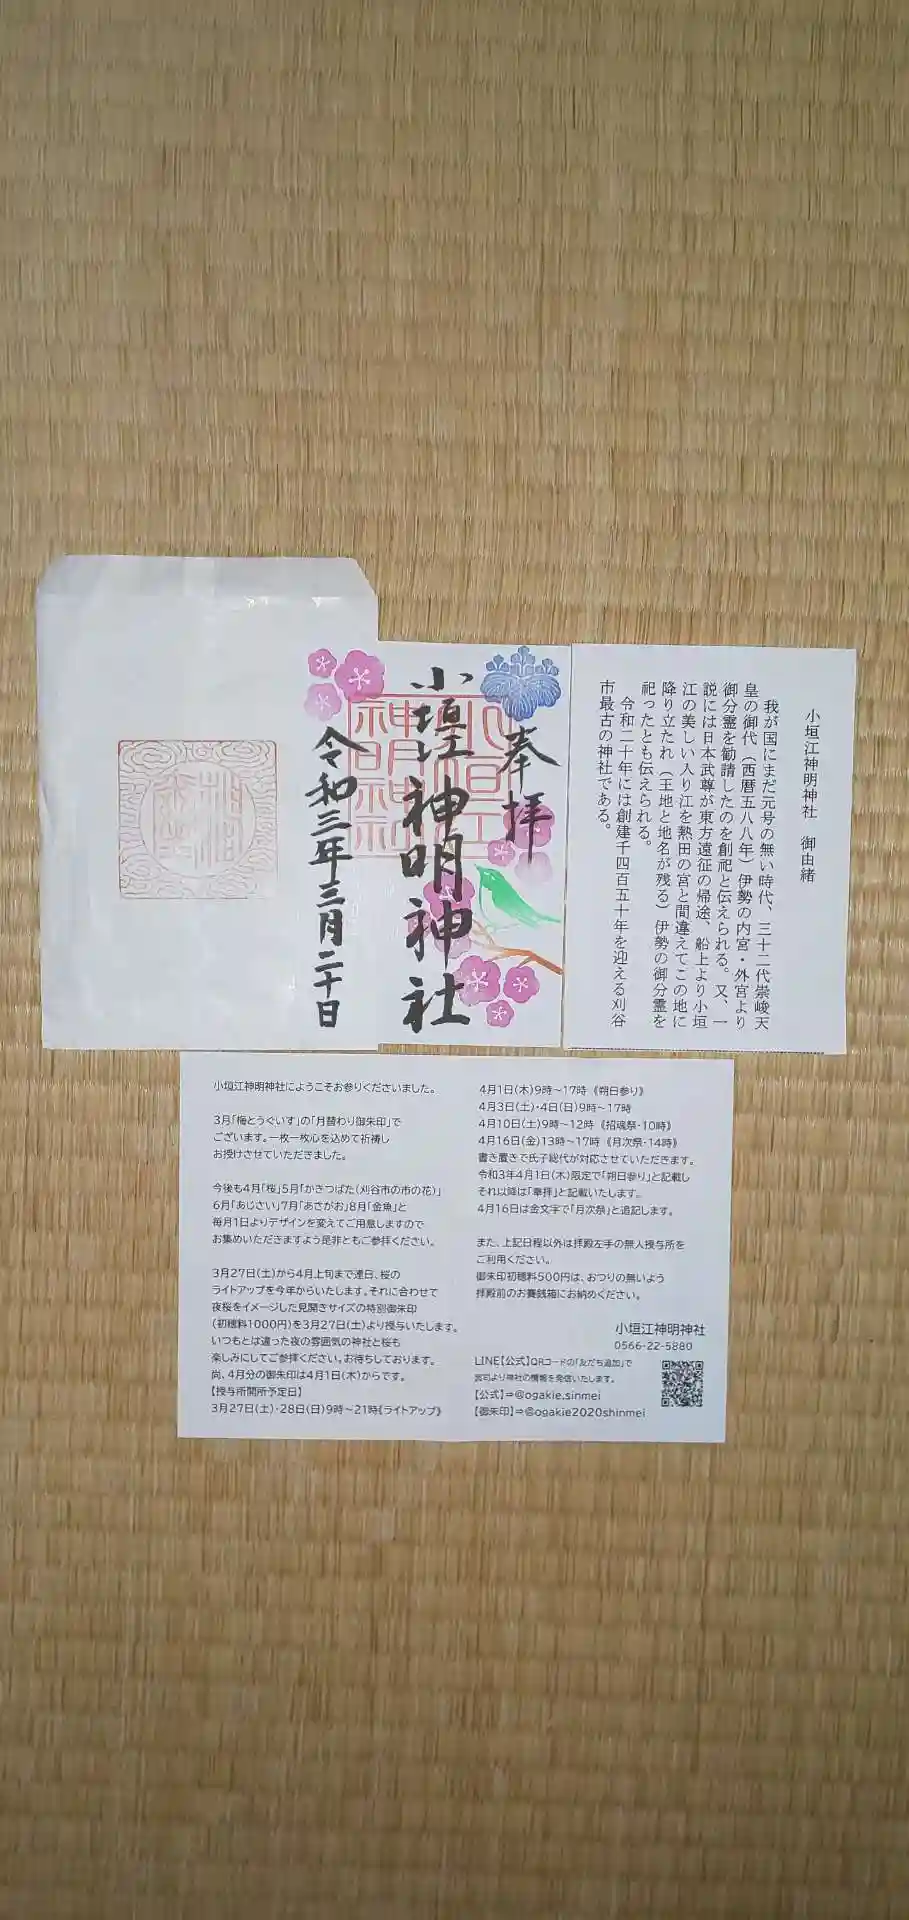 奉拝
小垣江神明神社
令和三年三月二十日
小垣江神明神社
小垣江神明神社 御由緒
我が国にまだ元号の無い時代、三十二代崇峻天
皇の御代（西暦五八八年）伊勢の内宮・外宮より
御分霊を勧請したのを創祀と伝えられる。又、一
説には日本武尊が東方遠征の帰途、船上より小垣
江の美しい入り江を熱田の宮と間違えてこの地に
降り立たれ（王地と地名が残る）伊勢の御分霊を
祀ったとも伝えられる。
令和二十年には創建千四百五十年を迎える刈谷
市最古の神社である。
小垣江神明神社にようこそお参りくださいました。
3月「梅とうぐいす」の「月替わり御朱印」で
ございます。一枚一枚心を込めて祈祷し
お授けさせていただきました。
今後も4月「桜」5月「かきつばた(刈谷市の市の花)」
6月「あじさい」7月「あさがお」8月「金魚」と
毎月1日よりデザインを変えてご用意しますので
お集めいただきますよう是非ともご参拝ください。
3月27日(土)から4月上旬まで連日、桜の
ライトアップを今年からいたします。それに合わせて
夜桜をイメージした見開きサイズの特別御朱印
(初穂料1000円)を3月27日(土)より授与いたします。
いつもとは違った夜の雰囲気の神社と桜も
楽しみにしてご参拝ください。お待ちしております。
尚、4月分の御朱印は4月1日(木)からです。
【授与所開所予定日】
3月27日(土)・28日(日)9時～21時《ライトアップ》
4月1日(木)9時～17時 《朔日参り》
4月3日(土)・4日(日)9時～17時
4月10日(土)9時～12時 《招魂祭・10時》
4月16日(金)13時～17時 《月次祭・14時》
書き置きで氏子総代が対応させていただきます。
令和3年4月1日(木)限定で「朔日参り」と記載し
それ以降は「奉拝」と記載いたします。
4月16日は金文字で「月次祭」と追記します。
また、上記日程以外は拝殿左手の無人授与所を
ご利用ください。
御朱印初穂料500円は、おつりの無いよう
拝殿前のお賽銭箱にお納めください。
小垣江神明神社
0566-22-5880
LINE【公式】QRコードの「友だち追加」で
宮司より神社の情報を発信いたします。
【公式】⇒@ogakie.sinmei
【御朱印】⇒@ogakie2020shinmei